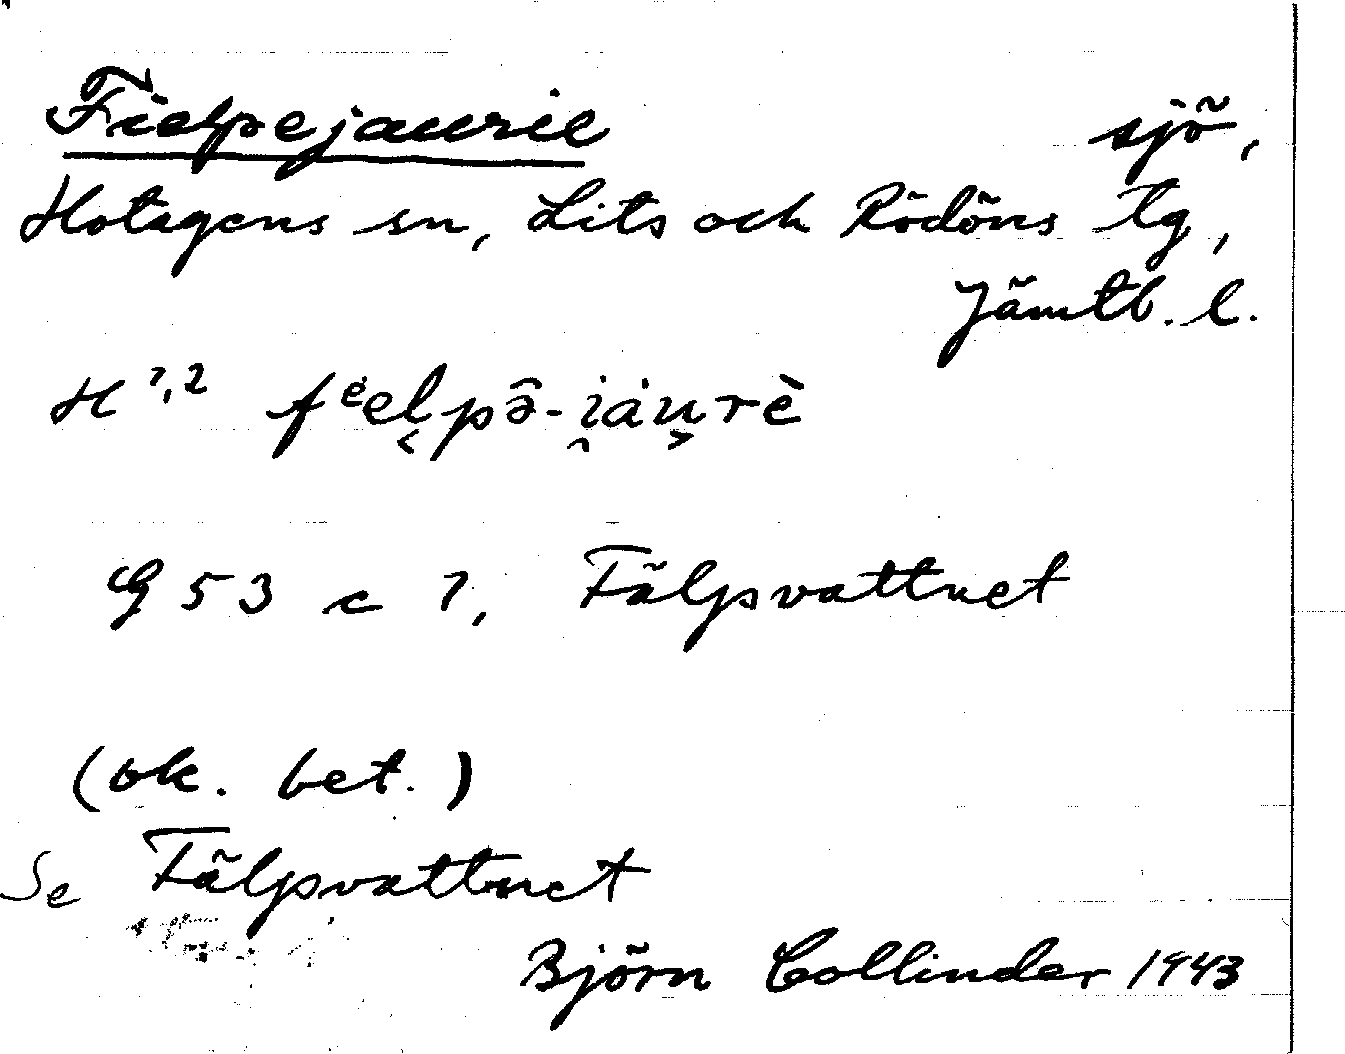 Fielpejaurie sjö,
Hotagens sn, Lits och Rödöns tg,
Jämtl. l.
H 1,2 fᵉ̇el̬pə̑-i̯ȧu̬rè
G 53 c 1, Fälpsvattnet
(ok. bet.)
Se Fälpsvattnet
Björn Collinder 1943